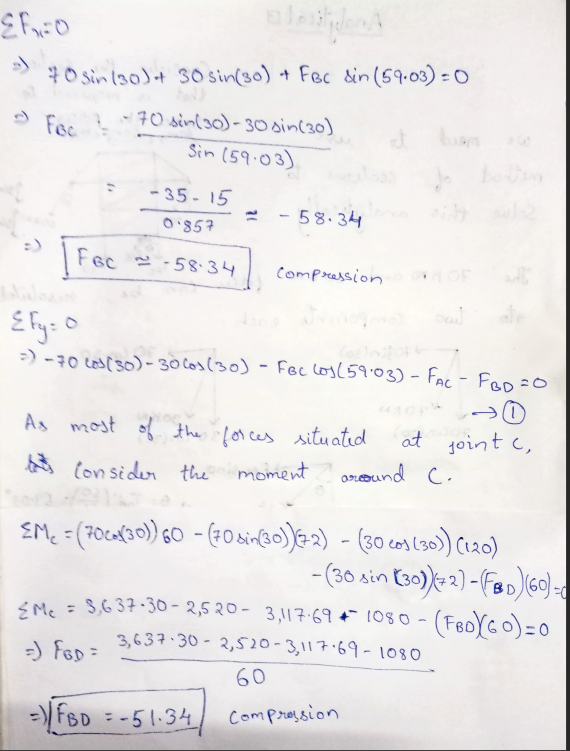 ΣFx=0
⇒ 70 sin(30) + 30 sin(30) + FBC sin(59.03) = 0
⇒ FBC = -70 sin(30) - 30 sin(30)
Sin (59.03)
= -35 - 15
0.857
≈ -58.34
⇒ FBC ≃ -58.34 compression
ΣFy = 0
⇒ -70 cos(30) - 30 cos(30) - FBC cos(59.03) - FAC - FBD = 0
→ ①
As most of the forces situated at joint C,
Consider the moment around C.
ΣMc = (70cos(30)) 60 - (70 sin(30))(72) - (30 cos(30)) (120)
- (30 sin (30))(72) - (FBD)(60) = 0
ΣMc = 3,637.30 - 2,520 - 3,117.69 - 1080 - (FBD)(60) = 0
⇒ FBD = 3,637.30 - 2,520 - 3,117.69 - 1080
60
⇒ FBD = -51.34 compression